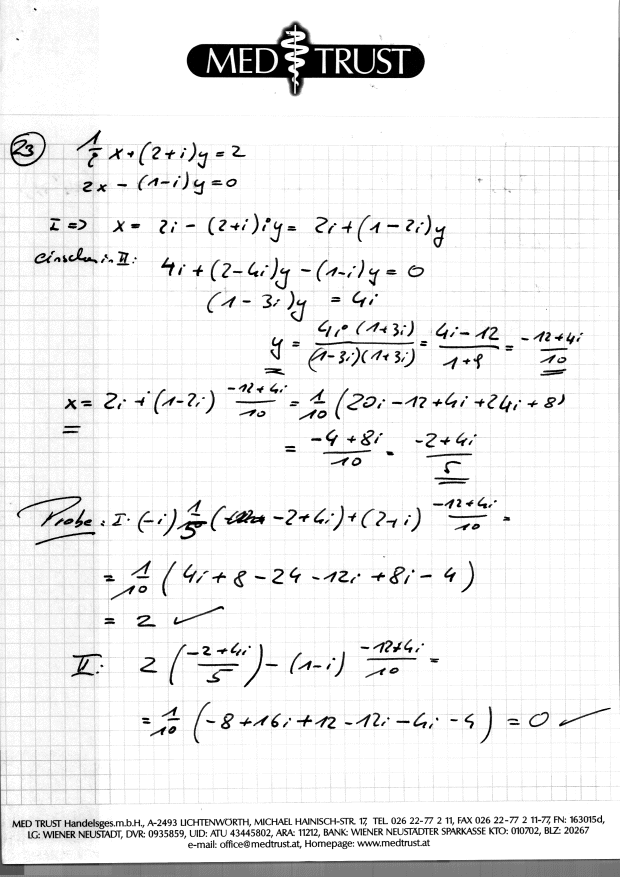 MED TRUST
23 1/i x+(2+i)y=2
2x - (1-i)y=0
I => x = 2i - (2+i)iy = 2i+(1-2i)y
Einsetzen in II: 4i+(2-4i)y-(1-i)y=0
(1-3i)y = 4i
y = 4i·(1+3i)/(1-3i)(1+3i) = 4i-12/1+9 = -12+4i/10
x = 2i+(1-2i) -12+4i/10 = 1/10 (20i-12+4i+24i+8)
= -4+8i/10 = -2+4i/5
Probe: I: (-i) 1/5 (-2+4i)+(2+i) -12+4i/10 =
= 1/10 (4i+8-24-12i+8i-4)
= 2 ✓
II: 2 (-2+4i/5) - (1-i) -12+4i/10 =
= 1/10 (-8+16i+12-12i-4i-4) = 0 ✓
MED TRUST Handelsges.m.b.H., A-2493 LICHTENWÖRTH, MICHAEL HAINISCH-STR. 17, TEL. 026 22-77 2 11, FAX 026 22-77 2 11-77, FN: 163015d,
LG: WIENER NEUSTADT, DVR: 0935859, UID: ATU 43445802, ARA: 11212, BANK: WIENER NEUSTÄDTER SPARKASSE KTO: 010702, BLZ: 20267
e-mail: office@medtrust.at, Homepage: www.medtrust.at